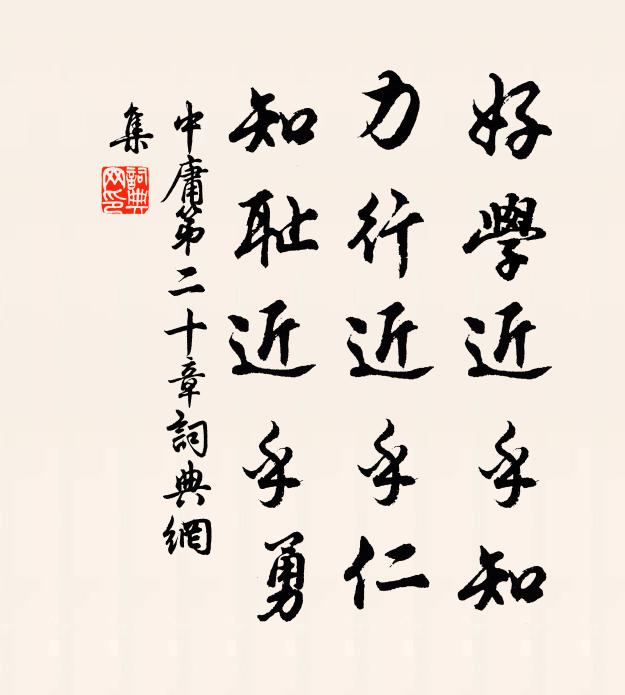 好學近乎知
力行近乎仁
知恥近乎勇
中庸第二十章詞典網
集
詞典
网印